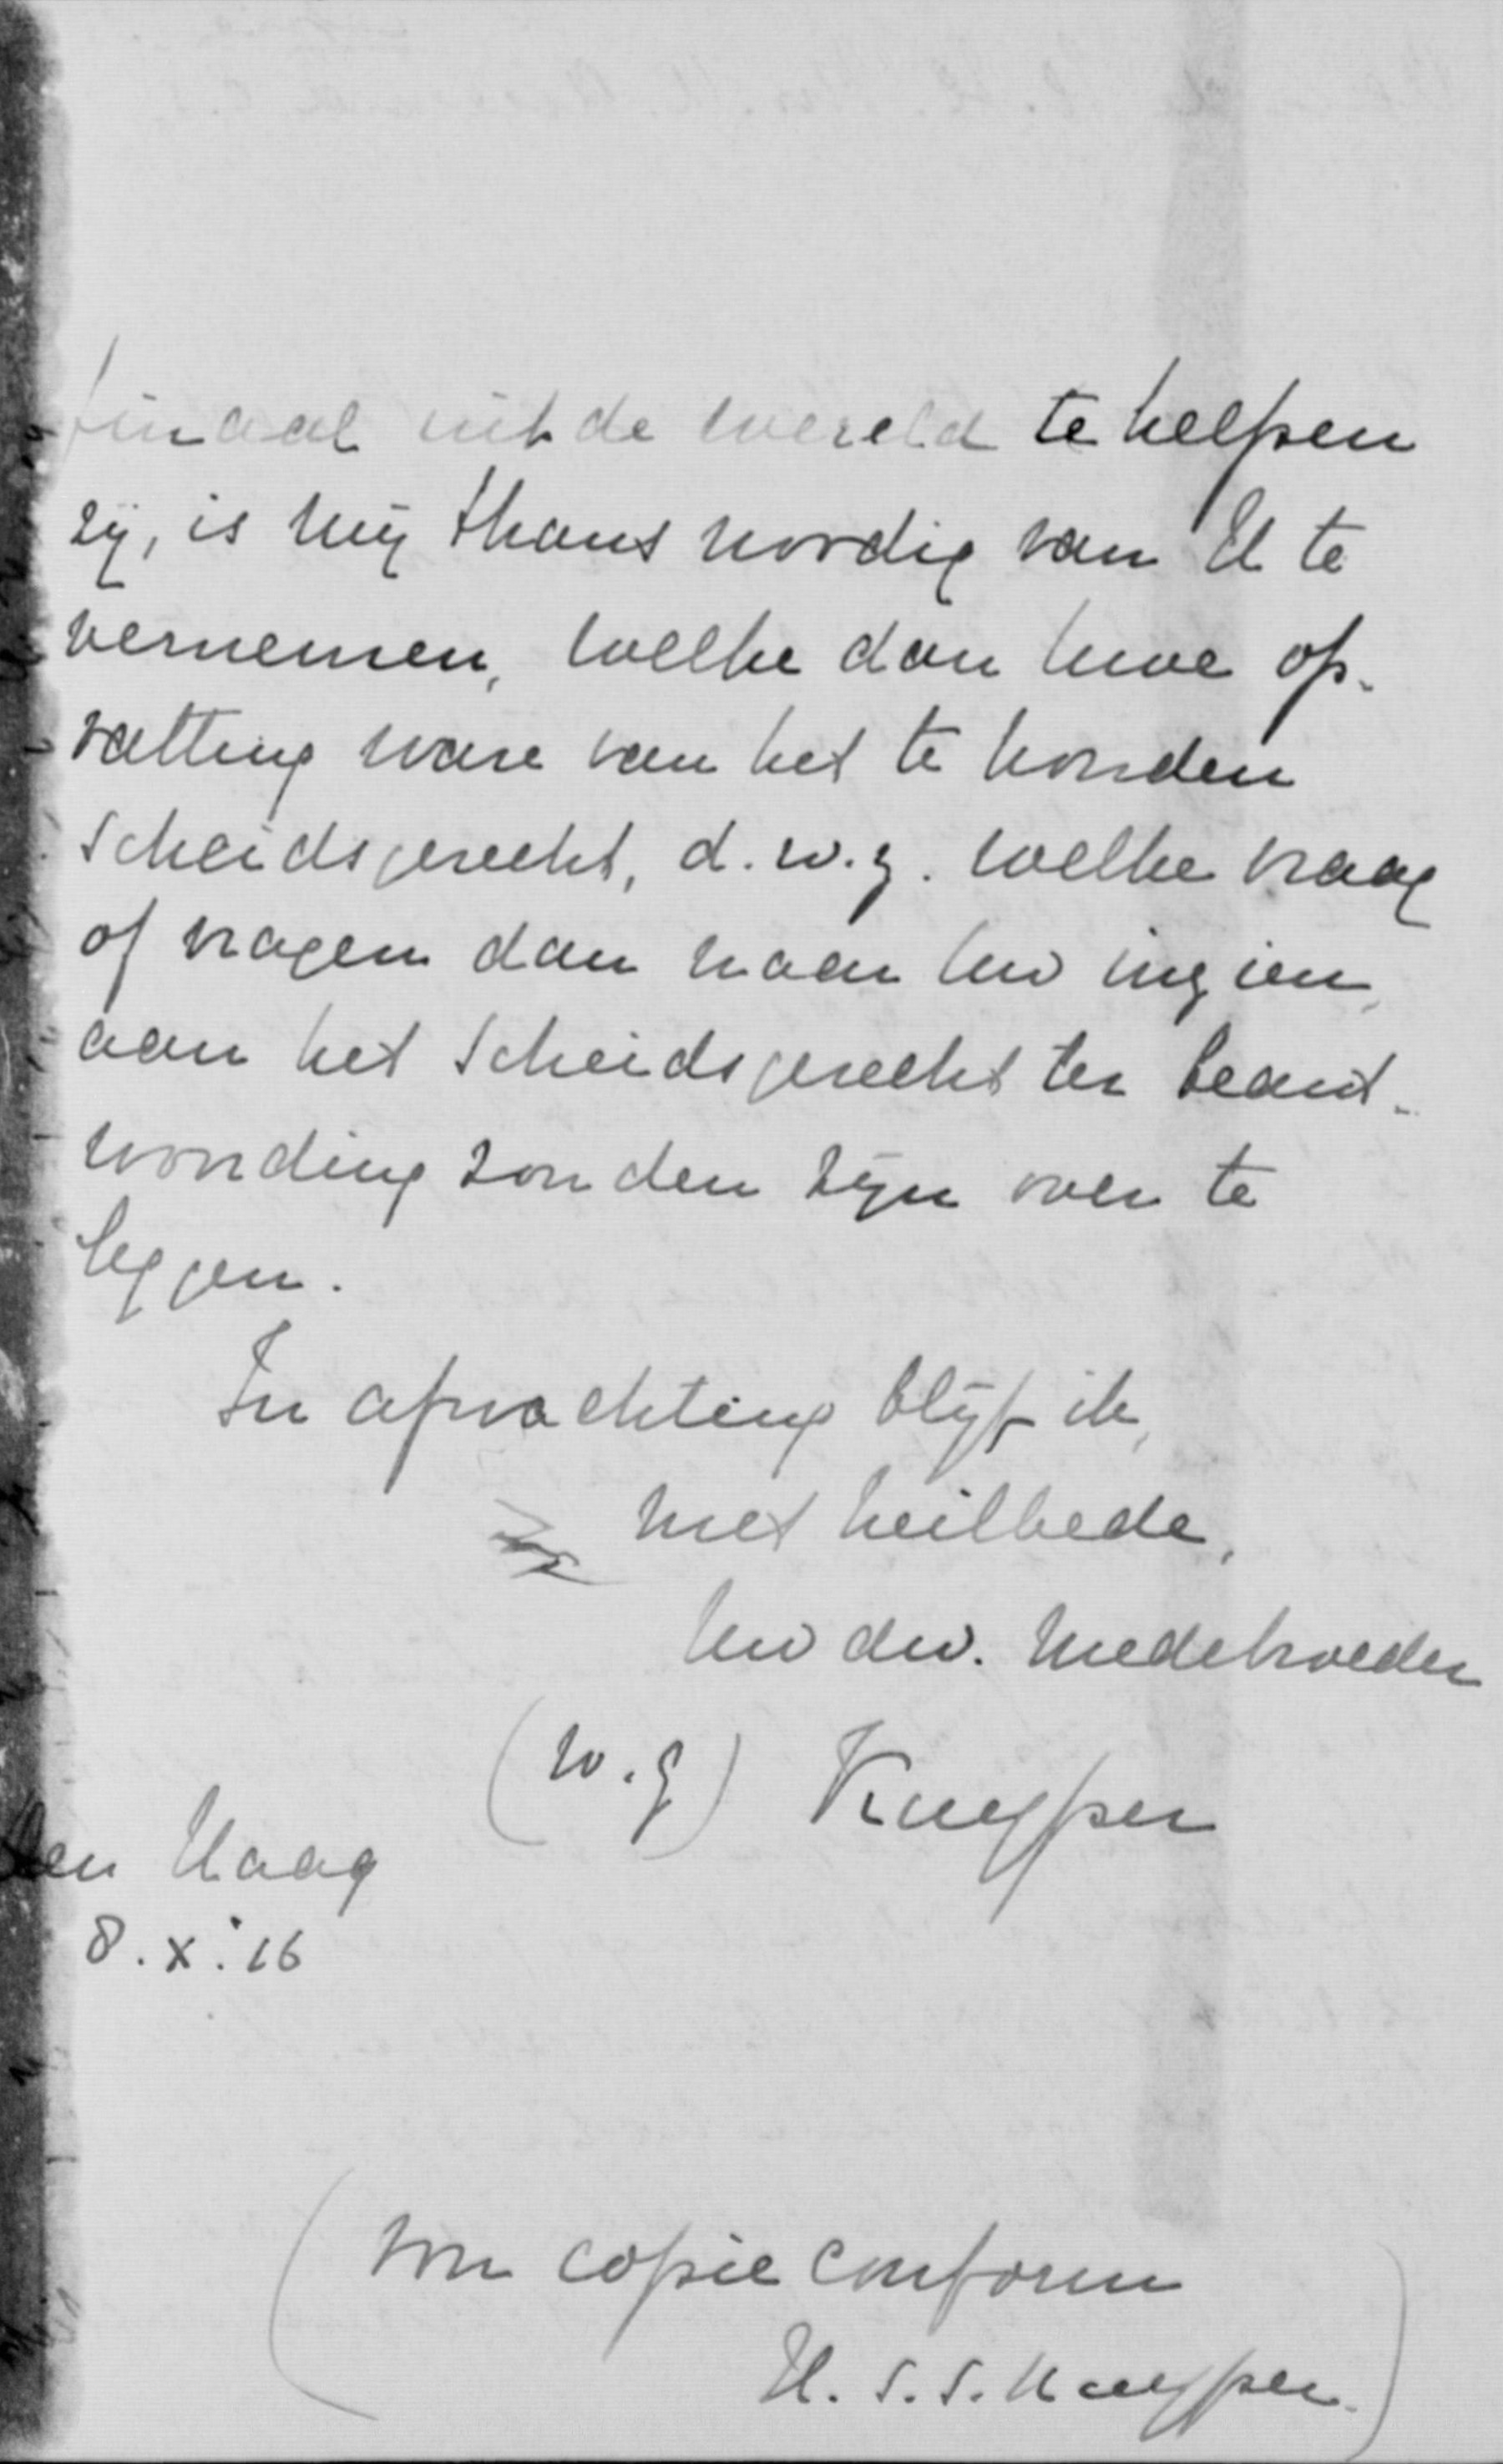 finaal uit de wereld te helpen
zij, is mij thans noodig van U te
vernemen, welke dan Uwe op-
vatting ware van het te houden
Scheidsgerecht, d.w.z. welke vraag
of vragen dan naar Uw inzien
aan het Scheidsgerecht ter beant-
woording zouden zijn over te
leggen.
In afwachting blijf ik,
met heilbede,
Uw dw. medebroeder
(w.g) Kuyper
Den Haag
8.X.'16
(voor copie conform
H.S.S. Kuyper.)